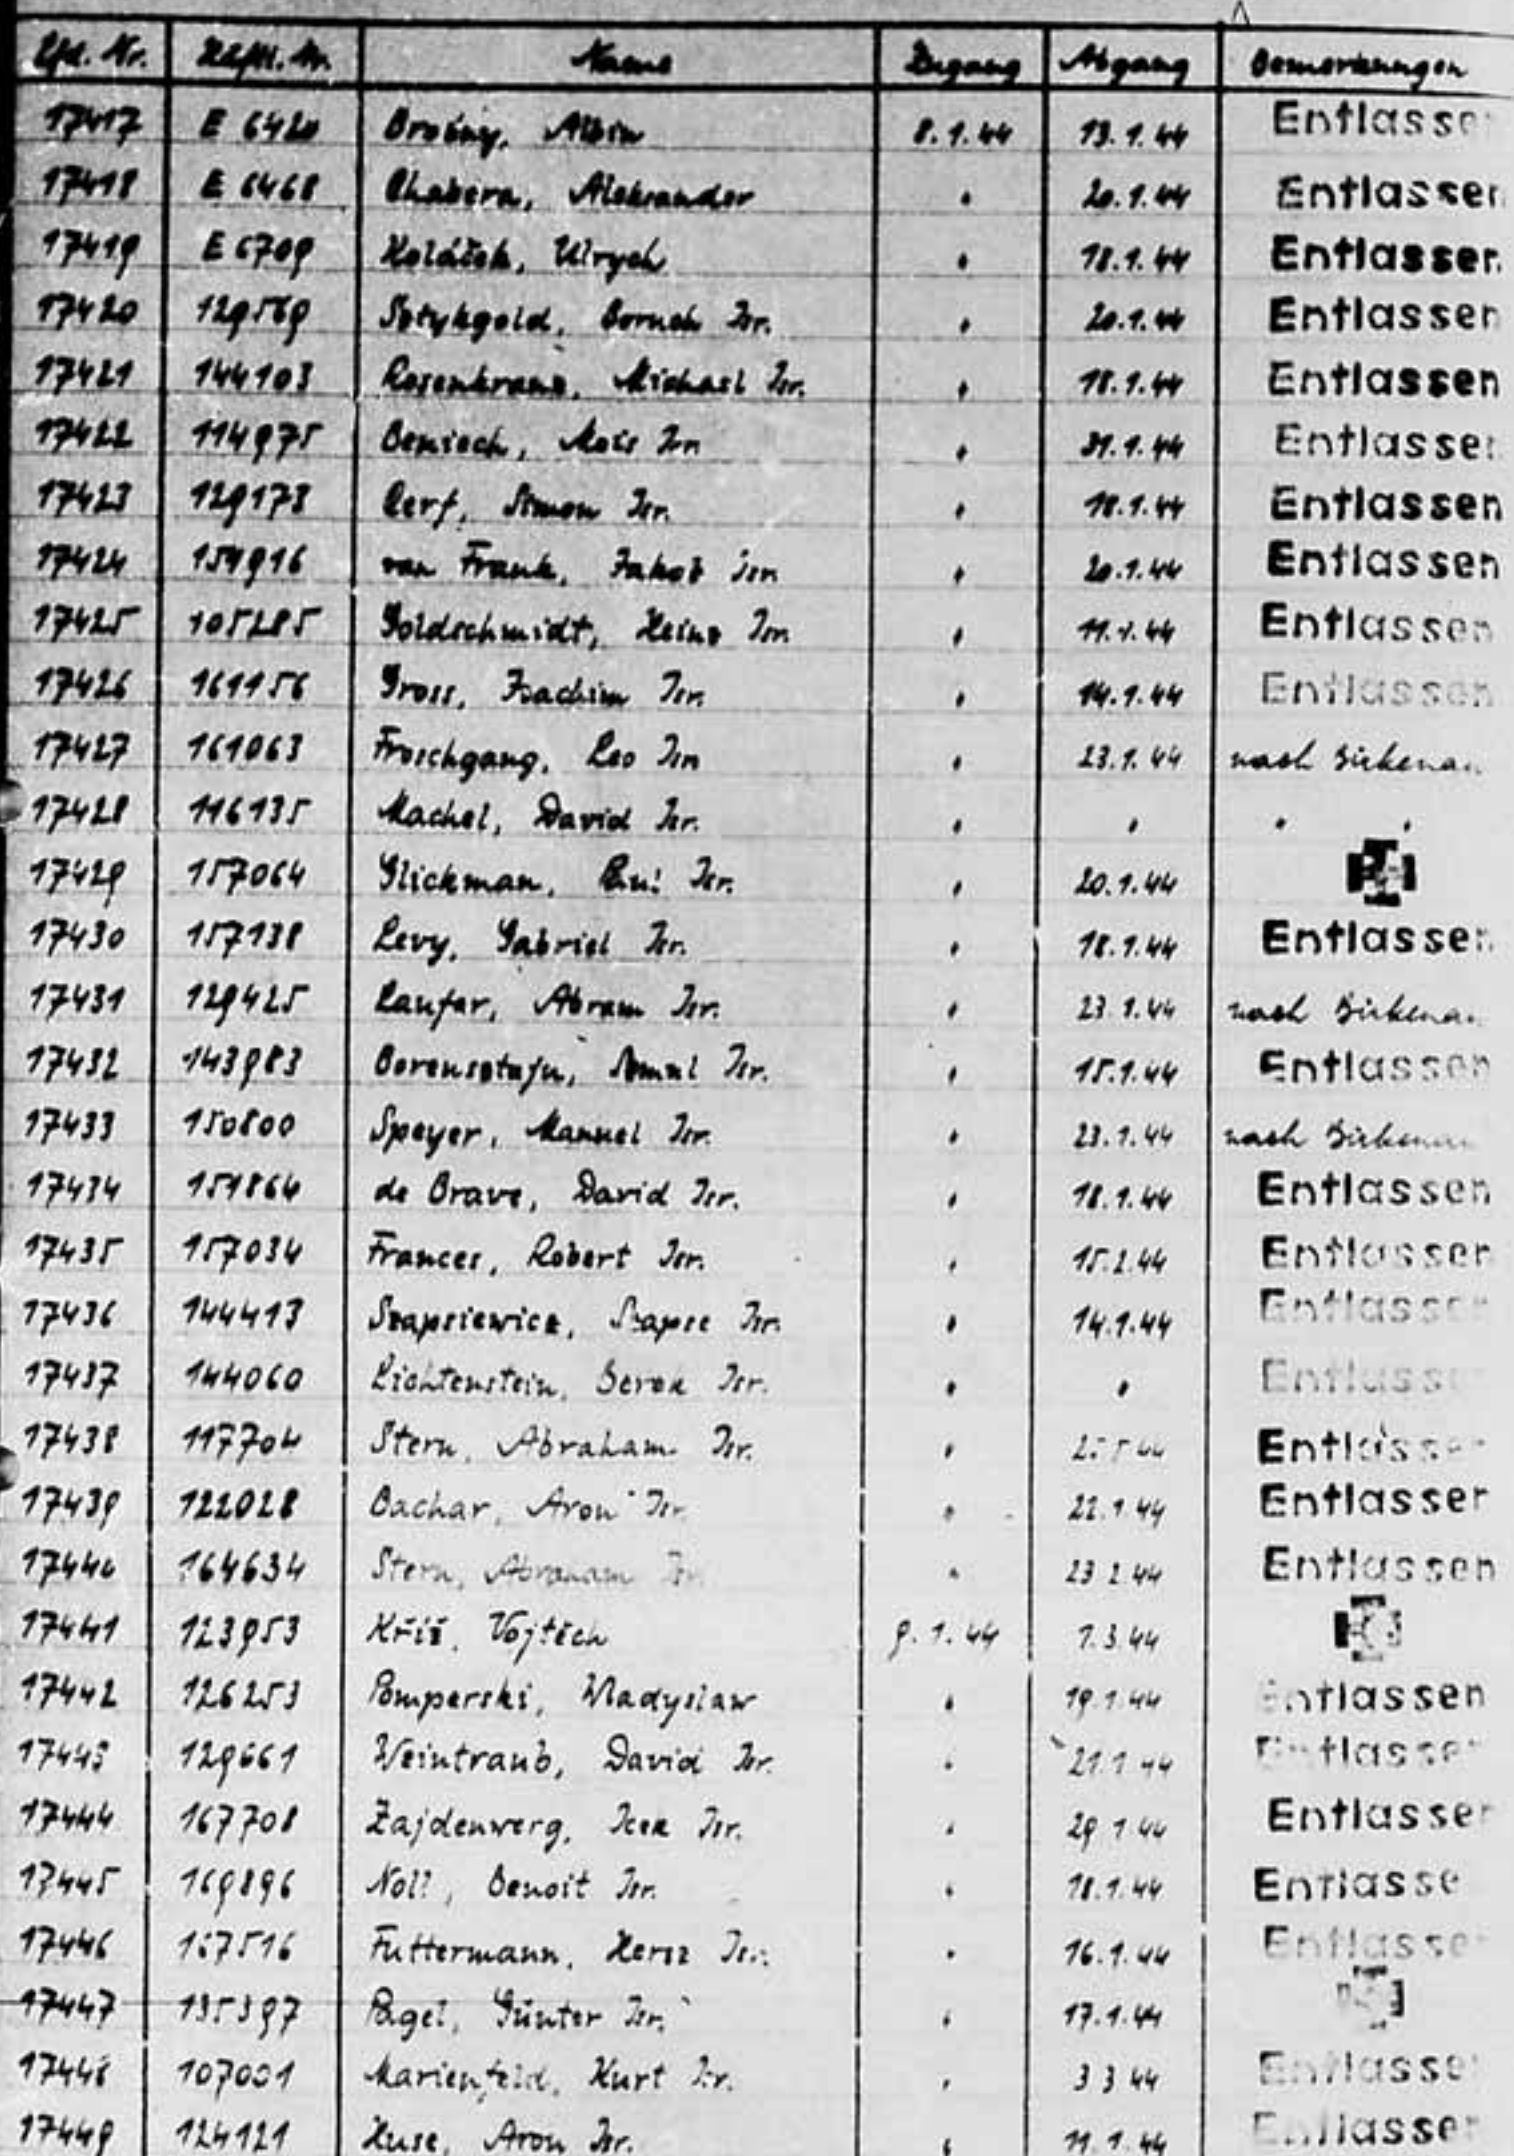 Lfd. Nr. Häftl. Nr. Name Zugang Abgang Bemerkungen
17417 E 6420 Albin 8.1.44 13.1.44 Entlassen
17418 E 6468 Chabera, Aleksander " 20.1.44 Entlassen
17419 E 6709 Koláček, Ulrych " 18.1.44 Entlassen
17420 129569 Isr. " 20.1.44 Entlassen
17421 144103 Rosenkranz, Michael Isr. " 18.1.44 Entlassen
17422 114975 Isr. " 31.1.44 Entlassen
17423 129173 Cerf, Simon Isr. " 18.1.44 Entlassen
17424 151916 van Frank, Jakob Isr. " 20.1.44 Entlassen
17425 105285 Goldschmidt, Heinz Isr. " 11.1.44 Entlassen
17426 161156 Gross, Joachim Isr. " 14.1.44 Entlassen
17427 161063 Froschgang, Leo Isr. " 23.1.44 nach Birkenau
17428 116135 Machel, David Isr. " " " "
17429 157064 Glickman, Isr. " 20.1.44
17430 157138 Levy, Gabriel Isr. " 18.1.44 Entlassen
17431 129425 Laufer, Abram Isr. " 23.1.44 nach Birkenau
17432 143983 Borensztajn, Isr. " 15.1.44 Entlassen
17433 150800 Speyer, Manuel Isr. " 23.1.44 nach Birkenau
17434 151864 de Brave, David Isr. " 18.1.44 Entlassen
17435 157034 Frances, Robert Isr. " 15.2.44 Entlassen
17436 144413 Szapsiewicz, Szapse Isr. " 14.1.44 Entlassen
17437 144060 Lichtenstein, Berek Isr. " " Entlassen
17438 117704 Stern, Abraham Isr. " Entlassen
17439 122028 Bachar, Aron Isr. " 22.1.44 Entlassen
17440 164634 Stern, Abraham Isr. " 23.2.44 Entlassen
17441 123953 Kříž, Vojtěch 9.1.44 1.3.44
17442 126253 Pomperski, Wladyslaw " 19.1.44 Entlassen
17443 129661 Weintraub, David Isr. " 21.1.44 Entlassen
17444 167708 Zajdenwerg, Icek Isr. " 29.1.44 Entlassen
17445 169896 Noll, Benoit Isr. " 18.1.44 Entlassen
17446 167516 Futtermann, Hersz Isr. " 16.1.44 Entlassen
17447 135397 Pagel, Günter Isr. " 17.1.44
17448 107001 Marienfeld, Kurt Isr. " 3.3.44 Entlassen
17449 124121 Huse, Aron Isr. " 11.1.44 Entlassen